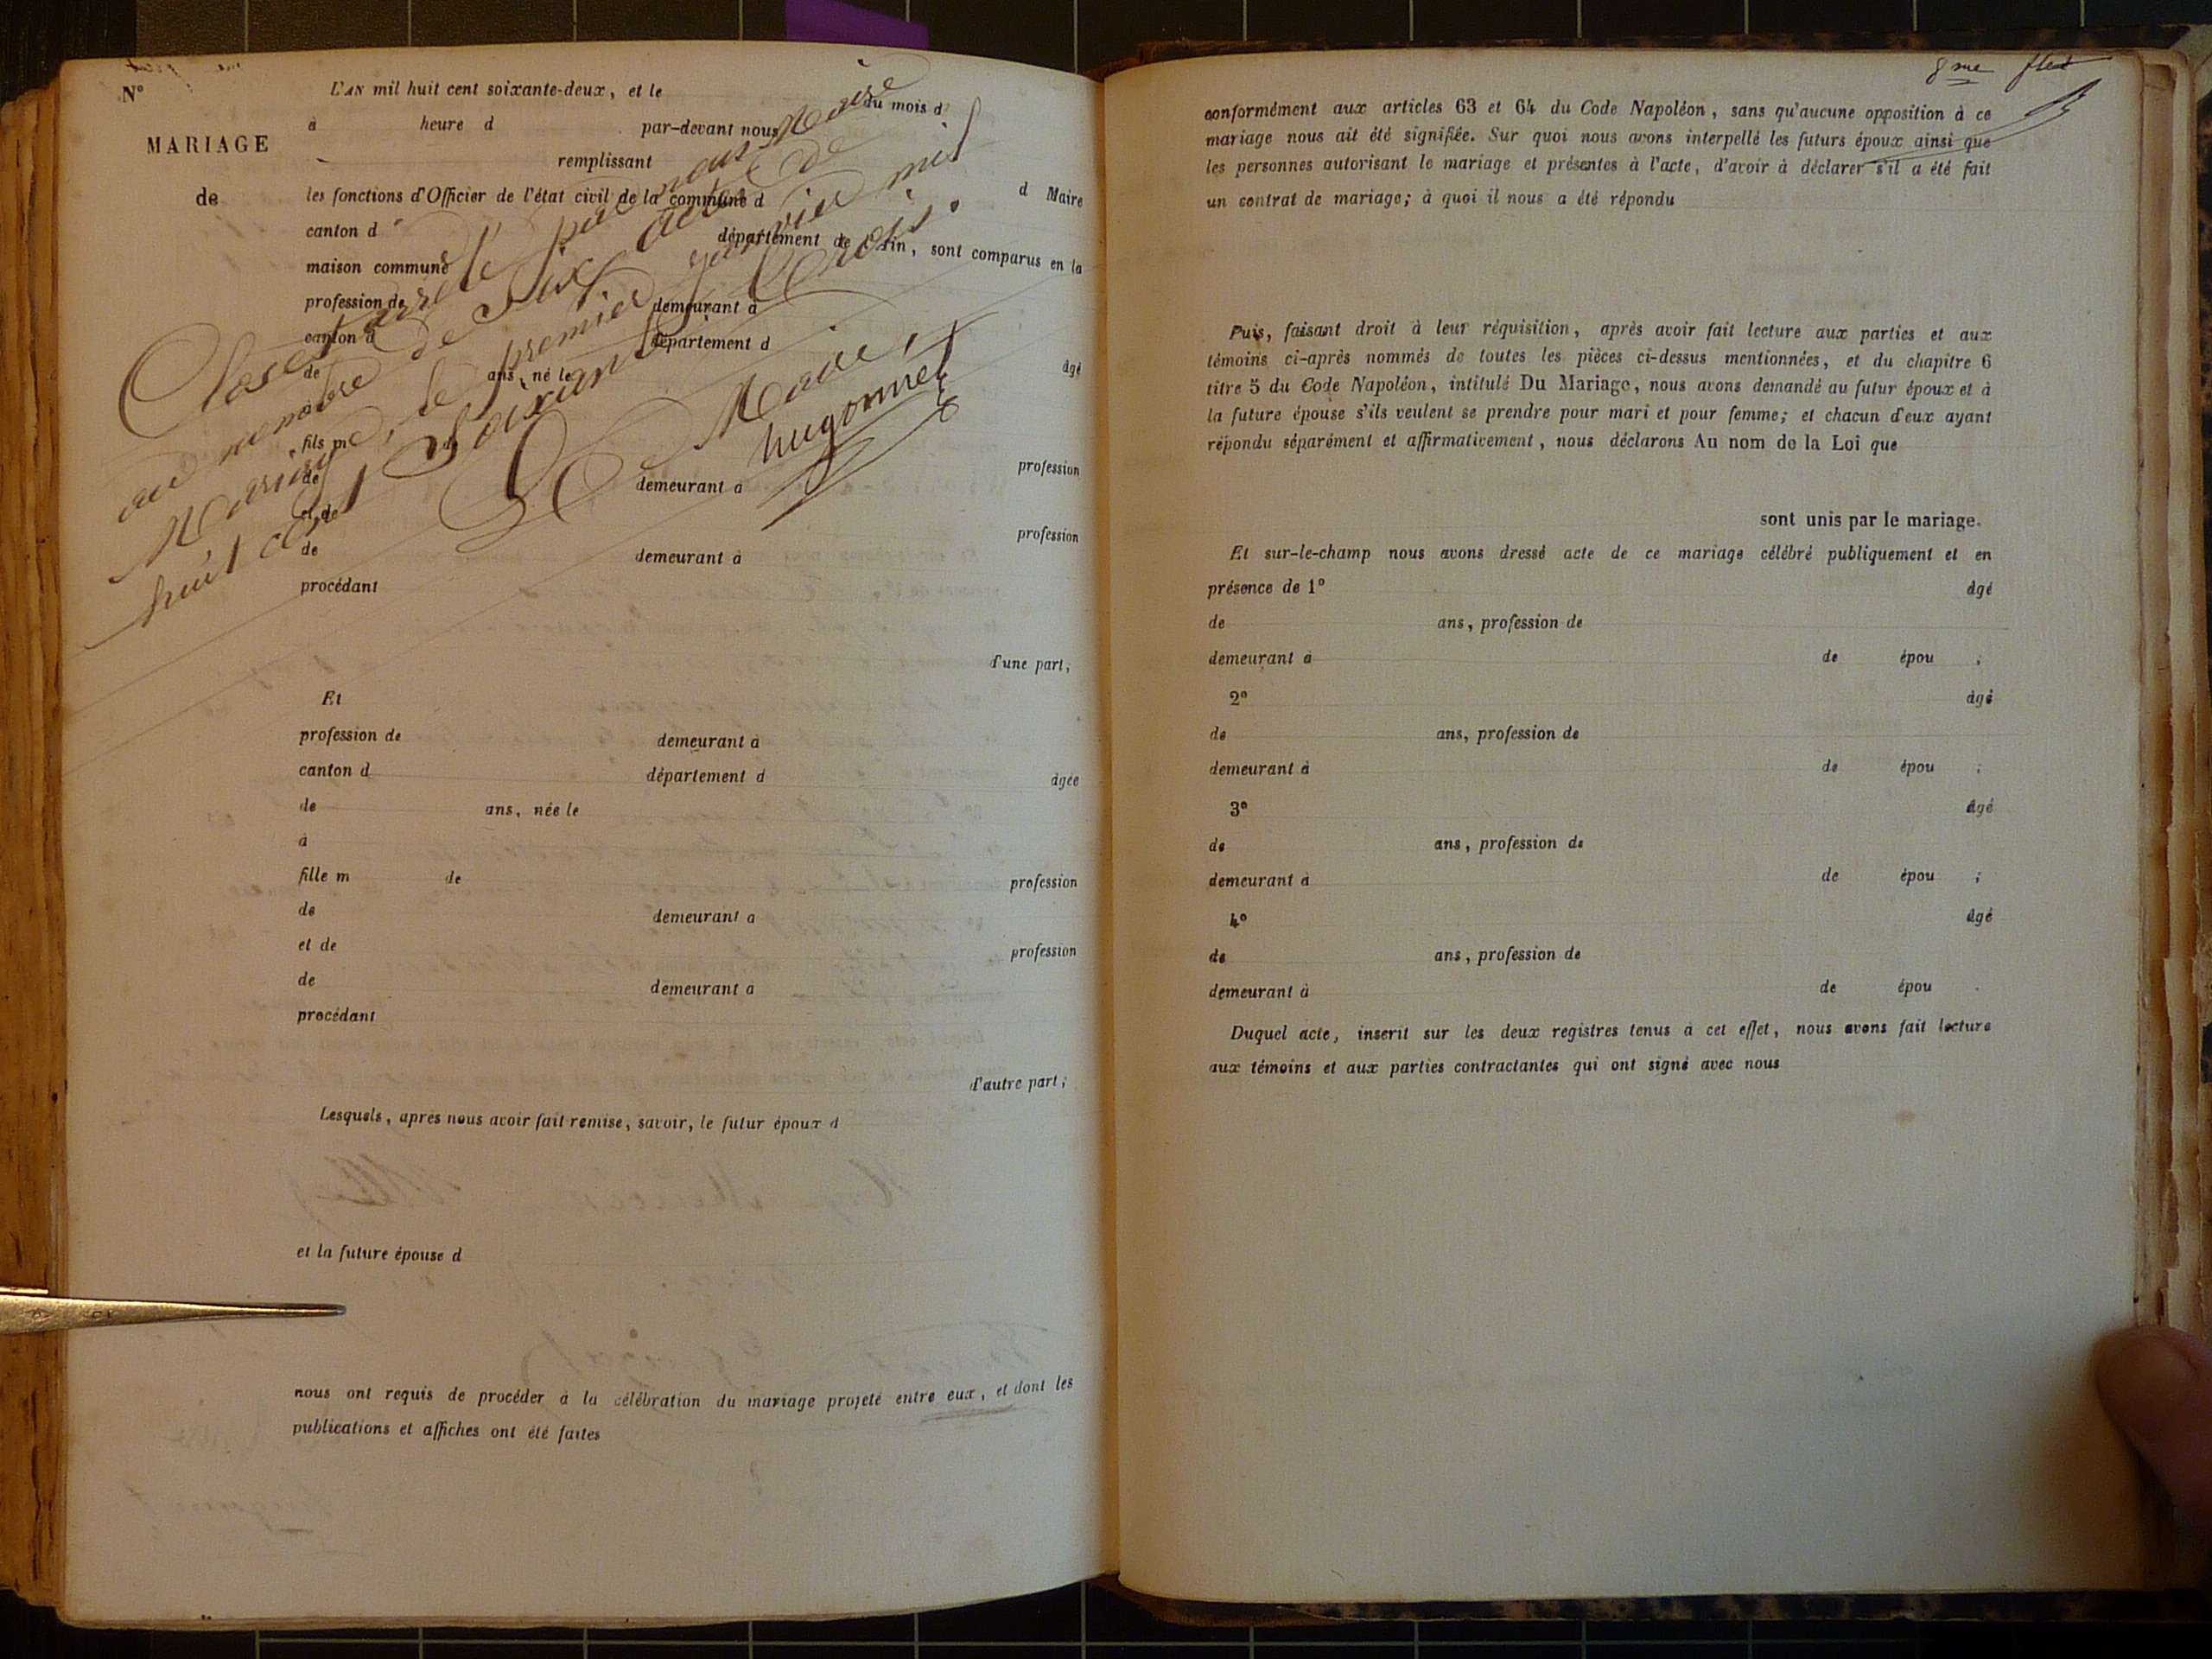 N°
MARIAGE
de
L'AN mil huit cent soixante-deux, et le du mois d
à heure d par-devant nous
remplissant
les fonctions d'Officier de l'état civil de la commune d d Maire
canton d département de l'Ain, sont comparus en la
maison commune
profession de demeurant à
canton d département d
de ans, né le âgé
fils m de profession
de demeurant à
et de profession
de demeurant à
procédant
d'une part;
Clos et arrêté par nous Maire
au nombre de Six actes de
Mariage, le premier janvier mil
huit cent Soixante trois.
Le Maire,
hugonnet
Et
profession de demeurant à
canton d département d âgée
de ans, née le
à
fille m de profession
de demeurant à
et de profession
de demeurant à
procédant
d'autre part;
Lesquels, après nous avoir fait remise, savoir, le futur époux d
et la future épouse d
nous ont requis de procéder à la célébration du mariage projeté entre eux, et dont les
publications et affiches ont été faites
8me
conformément aux articles 63 et 64 du Code Napoléon, sans qu'aucune opposition à ce
mariage nous ait été signifiée. Sur quoi nous avons interpellé les futurs époux ainsi que
les personnes autorisant le mariage et présentes à l'acte, d'avoir à déclarer s'il a été fait
un contrat de mariage; à quoi il nous a été répondu
Puis, faisant droit à leur réquisition, après avoir fait lecture aux parties et aux
témoins ci-après nommés de toutes les pièces ci-dessus mentionnées, et du chapitre 6
titre 5 du Code Napoléon, intitulé Du Mariage, nous avons demandé au futur époux et à
la future épouse s'ils veulent se prendre pour mari et pour femme; et chacun d'eux ayant
répondu séparément et affirmativement, nous déclarons Au nom de la Loi que
sont unis par le mariage.
Et sur-le-champ nous avons dressé acte de ce mariage célébré publiquement et en
présence de 1° âgé
de ans, profession de
demeurant à de épou ;
2° âgé
de ans, profession de
demeurant à de épou ;
3° âgé
de ans, profession de
demeurant à de épou ;
4° âgé
de ans, profession de
demeurant à de épou .
Duquel acte, inscrit sur les deux registres tenus à cet effet, nous avons fait lecture
aux témoins et aux parties contractantes qui ont signé avec nous